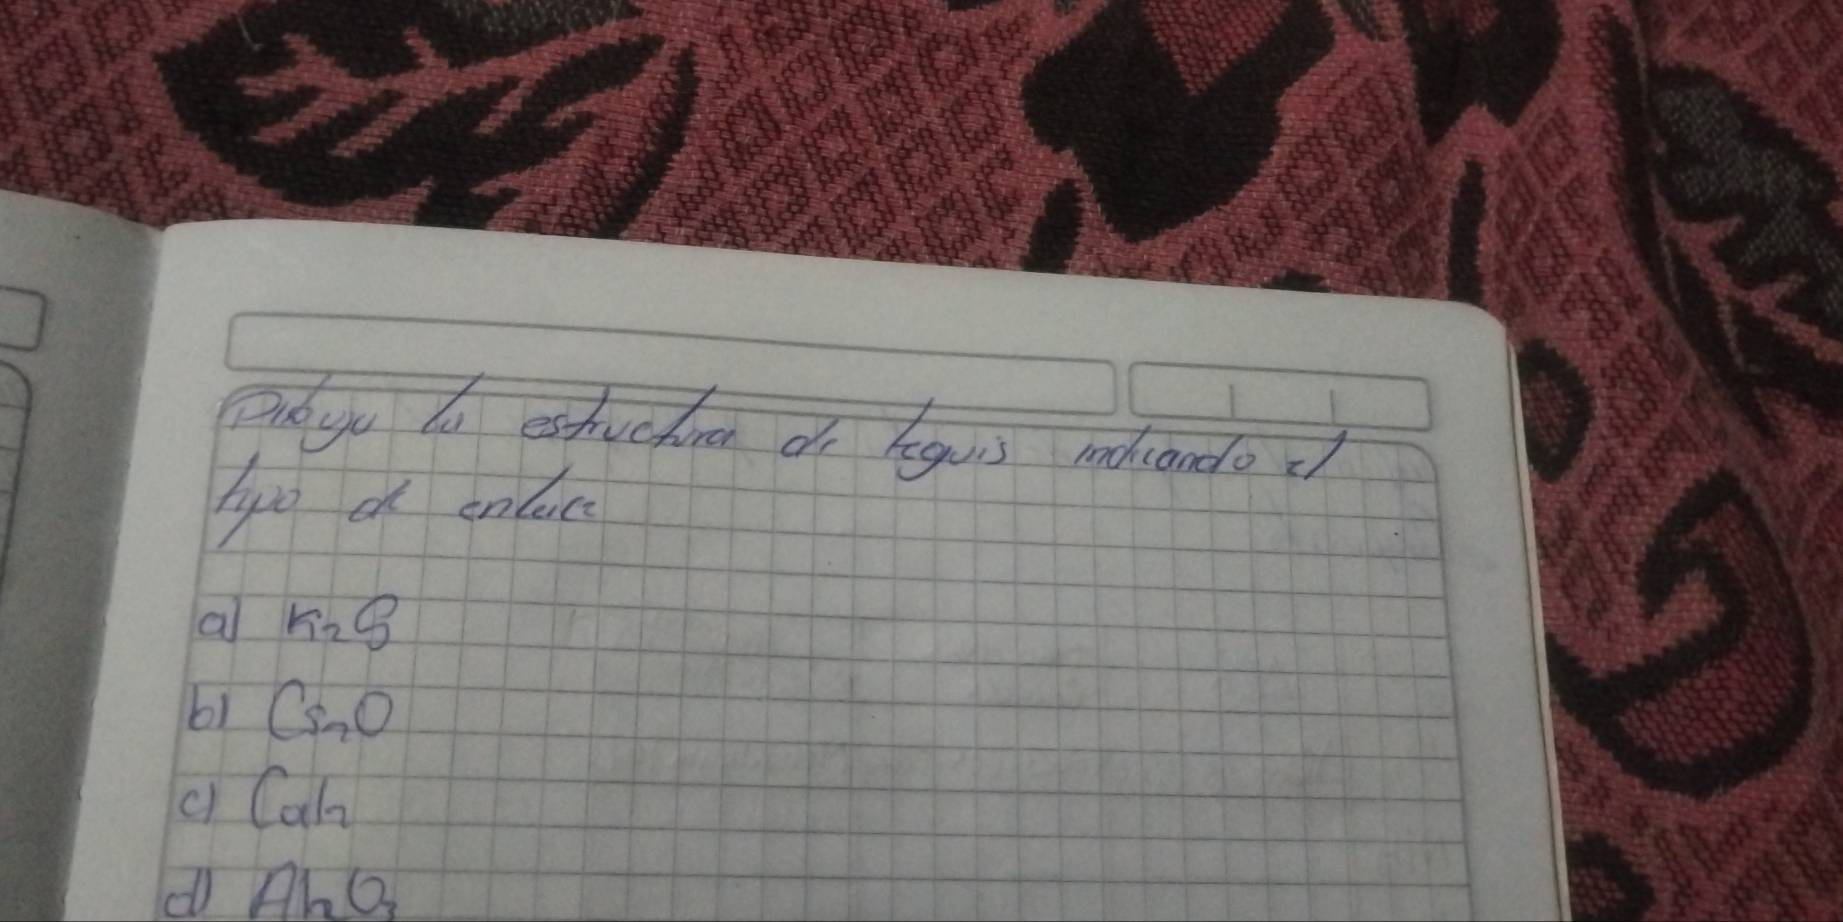 Dibuja la estructura de leguis indicando el
tipo de enlace
a) K2S
b) Cs2O
c) CaI2
d) Al2O3